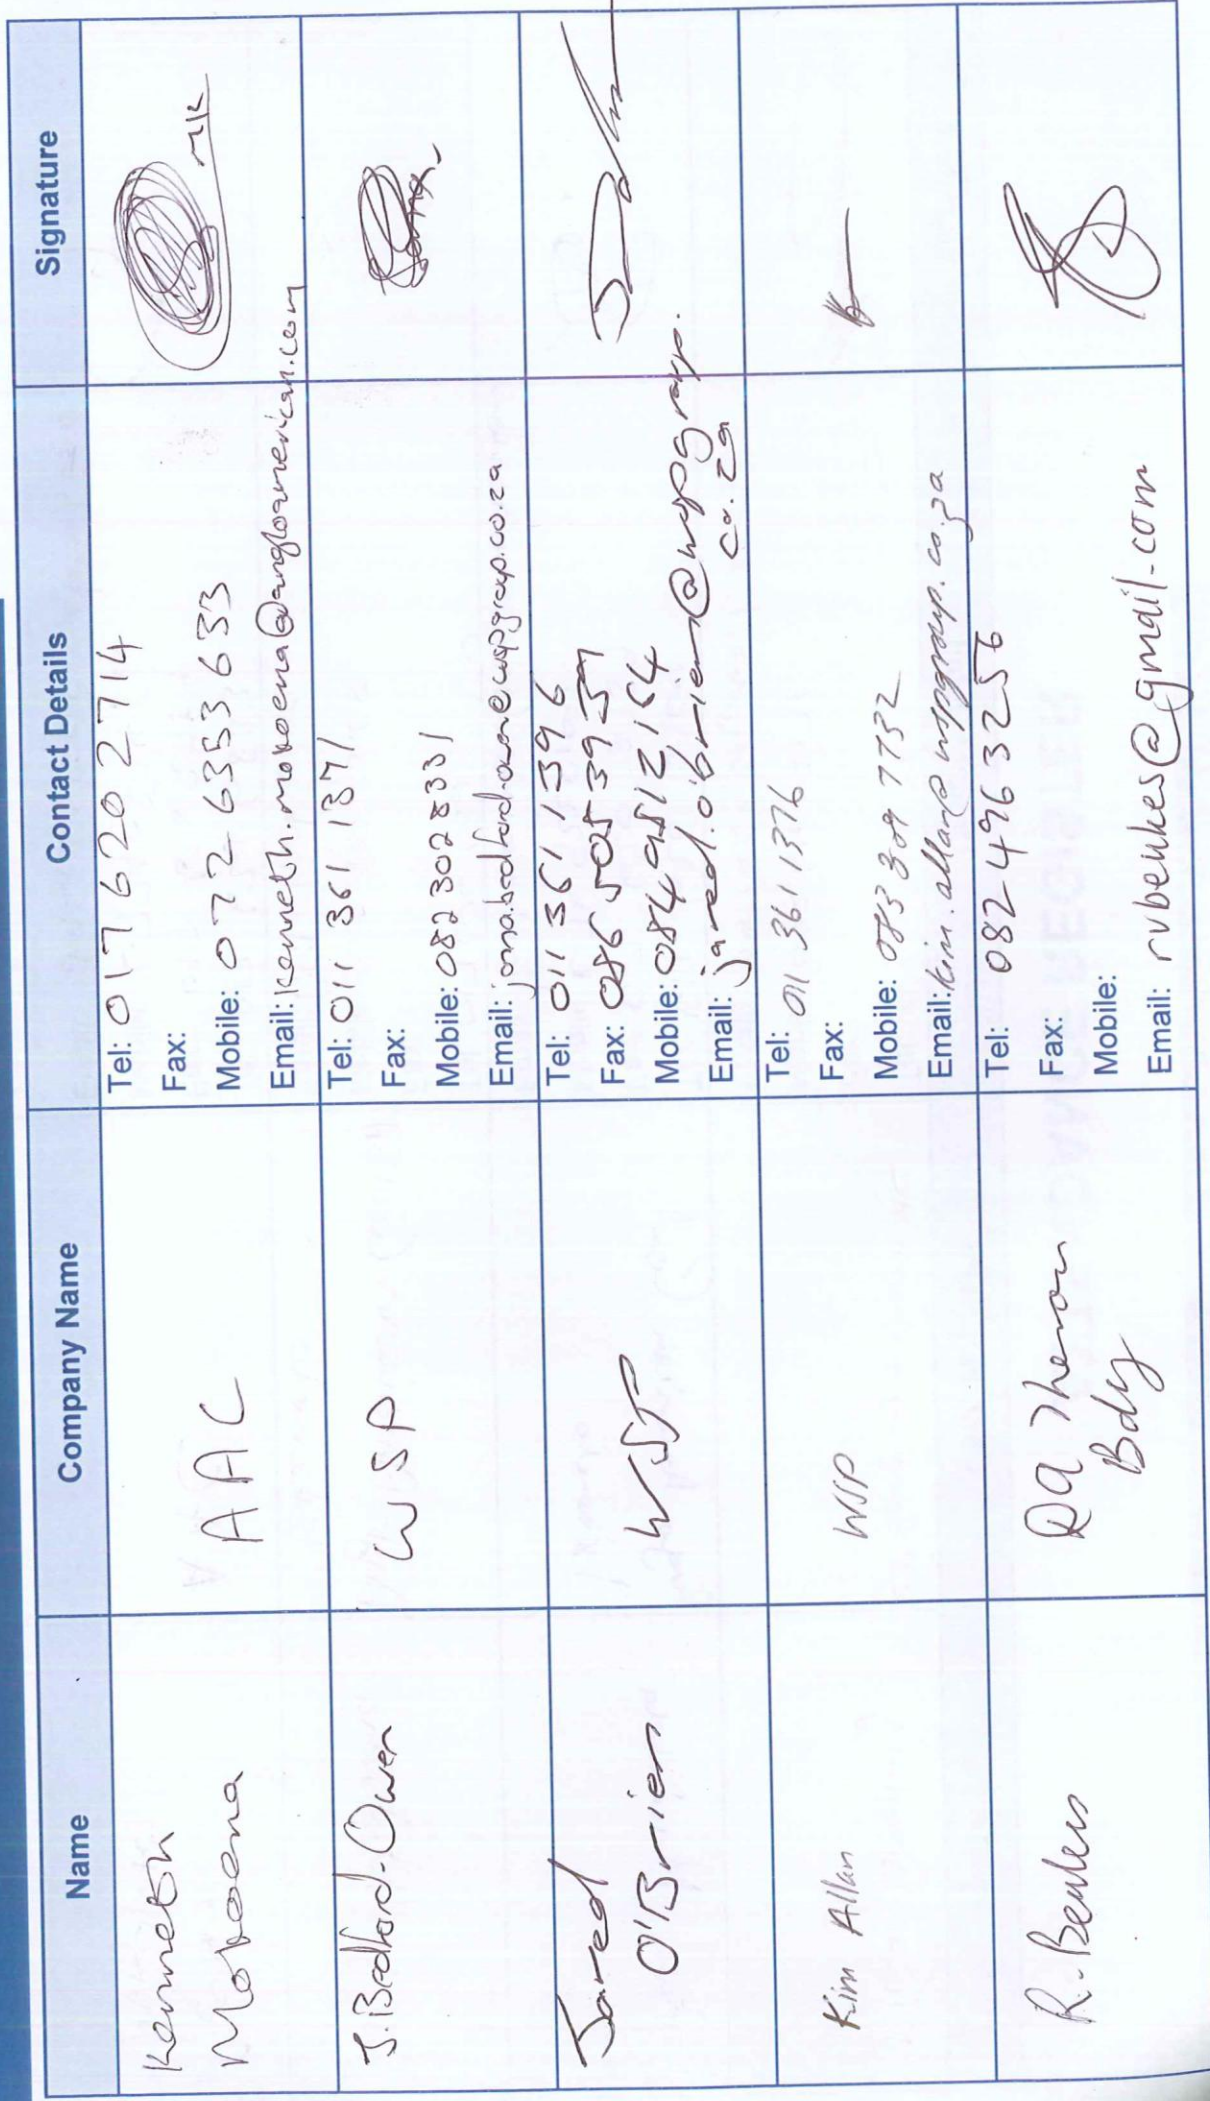 Name Company Name Contact Details Signature
Kenneth
Mokoena
AAC
Tel: 017 620 2714
Fax:
Mobile: 072 6353 633
Email: kenneth.mokoena@angloamerican.com
MK
J. Bedford-Owen
WSP
Tel: 011 361 1371
Fax:
Mobile: 082 302 8331
Email:
Jared
O'Brien
WSP
Tel: 011 361 1396
Fax:
Mobile:
Email: jared.obrien@wspgroup.
co.za
Kim Allan
WSP
Tel: 011 361 1376
Fax:
Mobile:
Email: kim.allan@wspgroup.co.za
R. Beukes
DA Theron
Bdy
Tel: 082 496 3256
Fax:
Mobile:
Email: rvbeukes@gmail.com